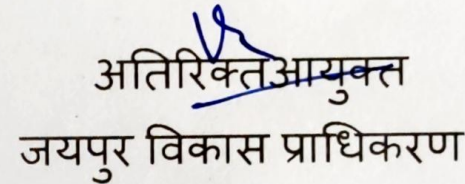 अतिरिक्त आयुक्त
जयपुर विकास प्राधिकरण